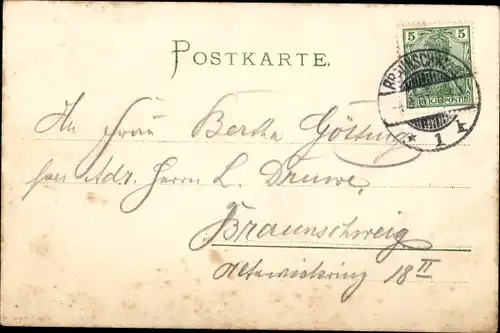 POSTKARTE.
5 5
REICHSPOST
BRAUNSCHWEIG
* 1 k
An Frau Bertha Götting
per Adr. Herrn L. Druwe,
Braunschweig
Altewiekring 18 II